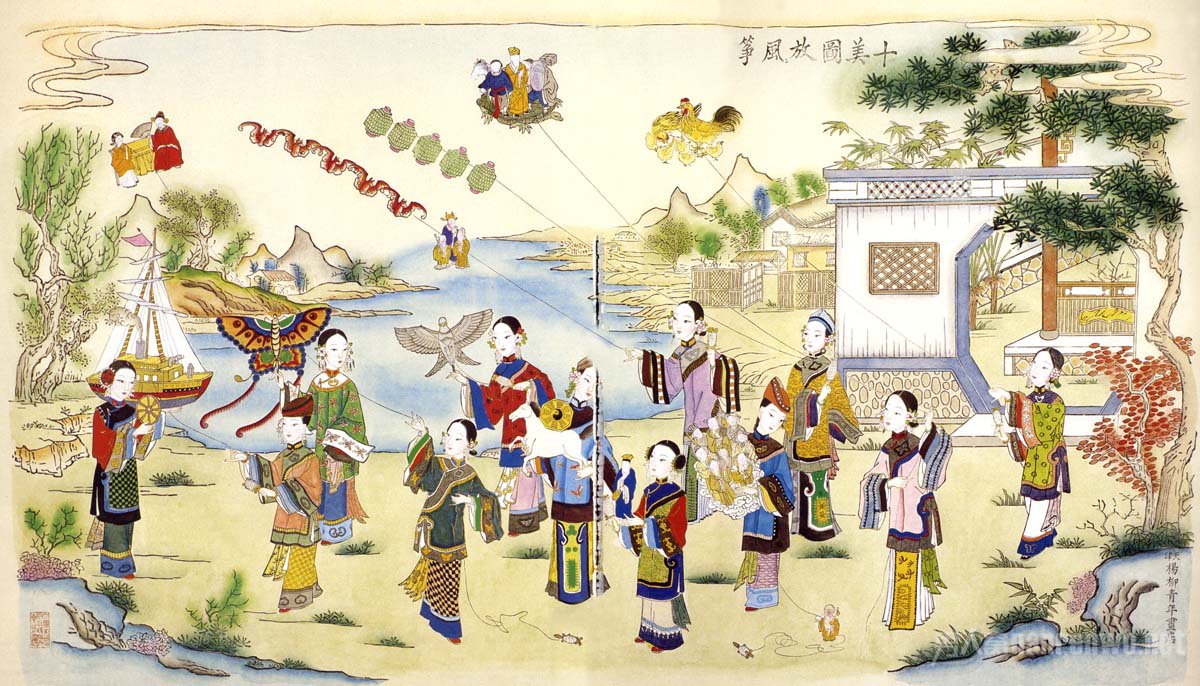 十美圖放風箏
楊柳青年畫店